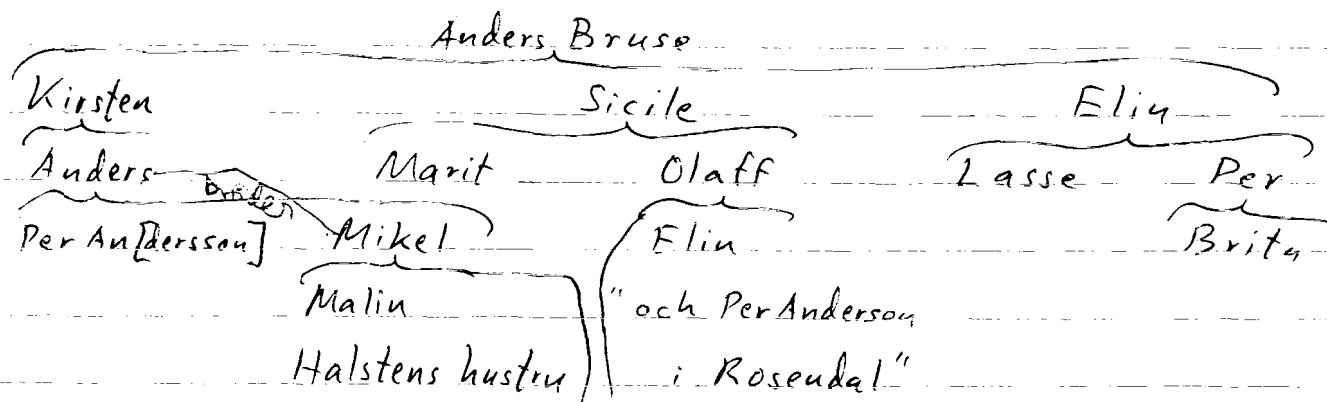 Anders Bruse
Kirsten Sicile Elin
Anders Marit Olaff Lasse Per
Per An[dersson] Mikel Elin Brita
Malin "och Per Anderson
Halstens hustru i Rosendal"